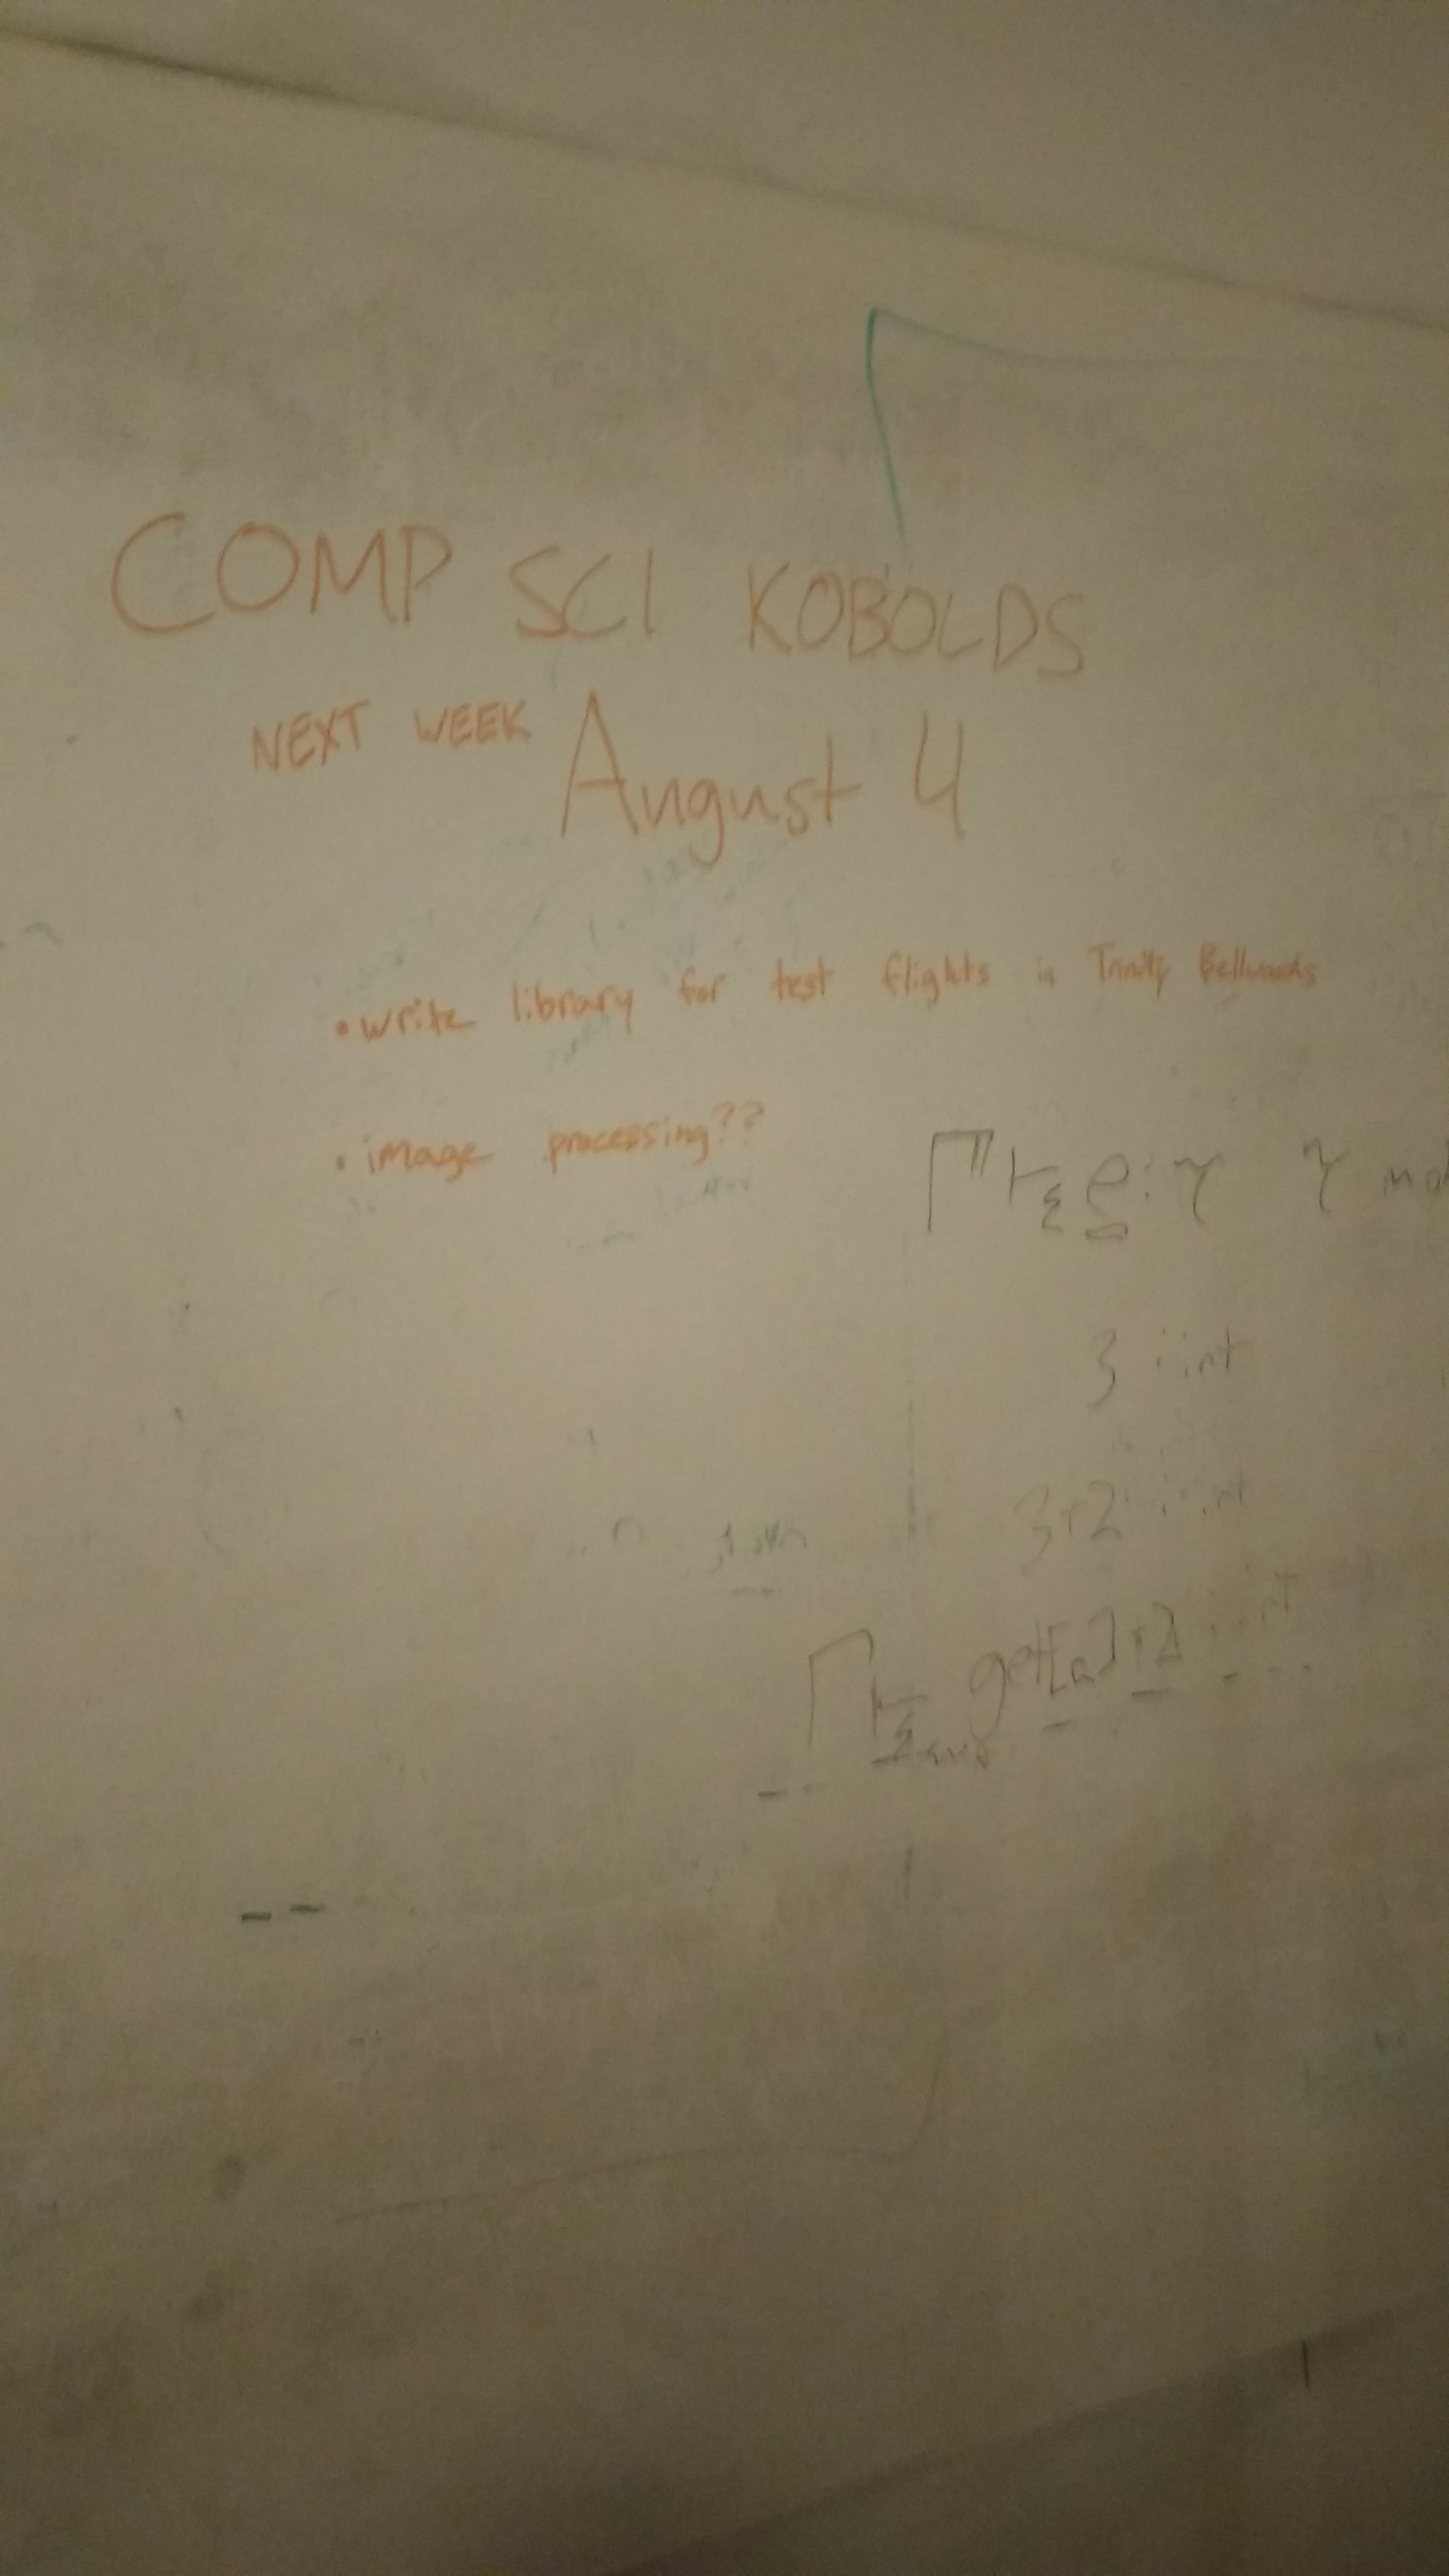 COMP SCI KOBOLDS
NEXT WEEK August 4
• write library for test flights in Trinity Bellwoods
• image processing??
Γ ⊢Σ e : τ τ
3 : int
3+2 : int
Γ ⊢Σ get[a]+2 : int